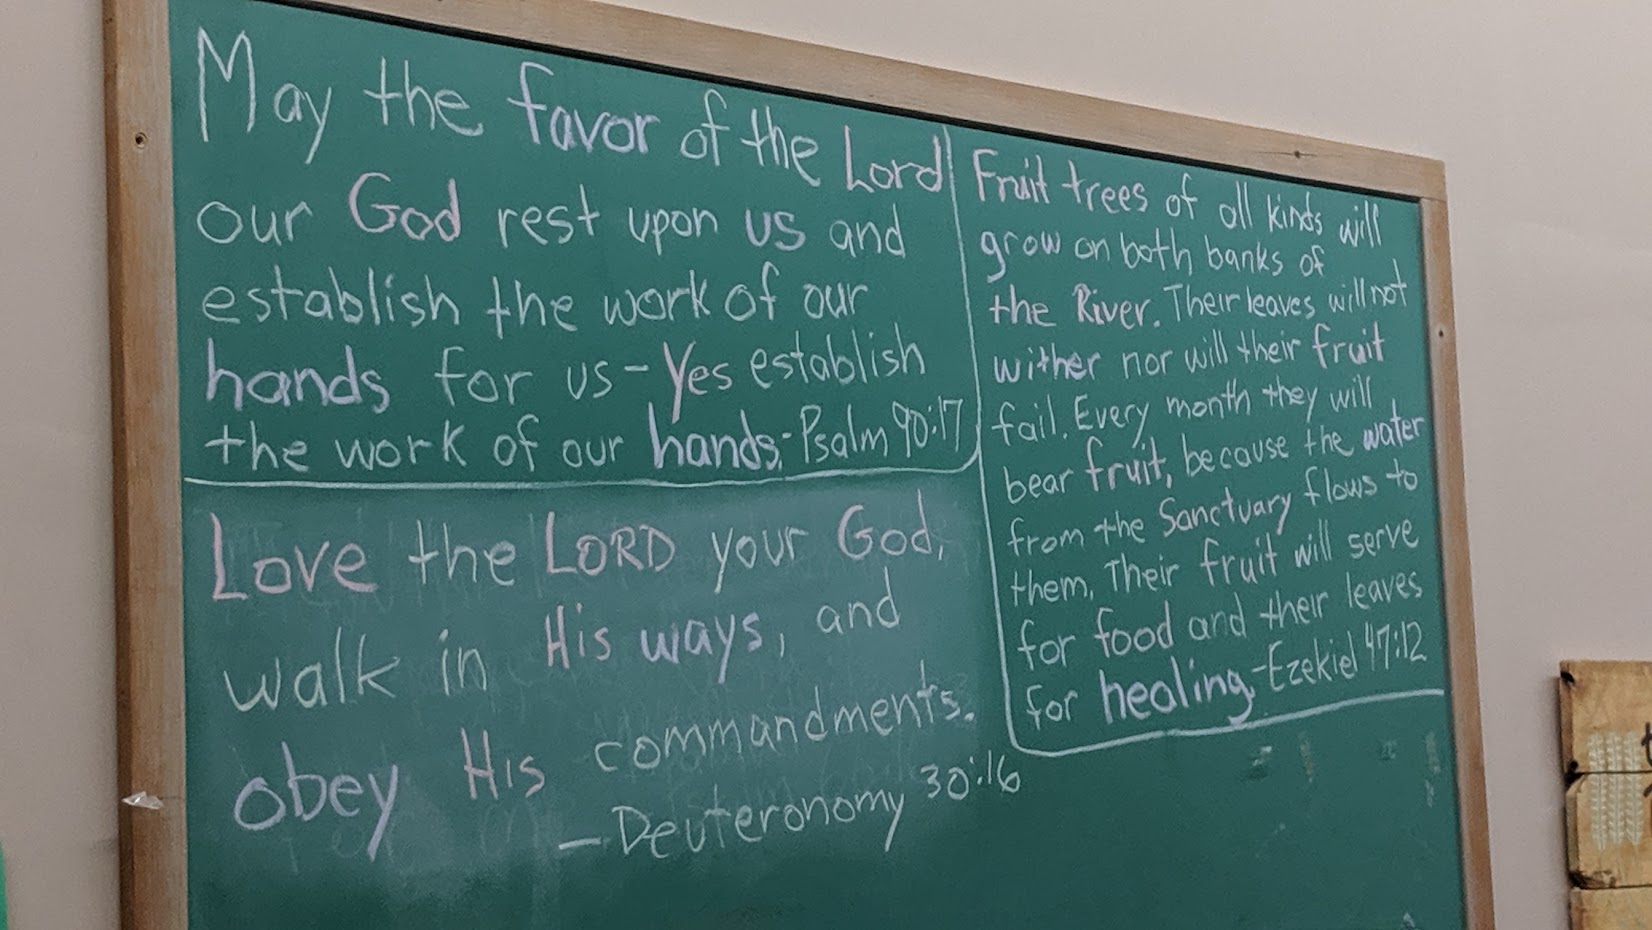 May the favor of the Lord
our God rest upon us and
establish the work of our
hands for us - Yes establish
the work of our hands. - Psalm 90:17
Love the LORD your God,
walk in His ways, and
obey His commandments.
- Deuteronomy 30:16
Fruit trees of all kinds will
grow on both banks of
the River. Their leaves will not
wither nor will their fruit
fail. Every month they will
bear fruit, because the water
from the Sanctuary flows to
them. Their fruit will serve
for food and their leaves
for healing. - Ezekiel 47:12